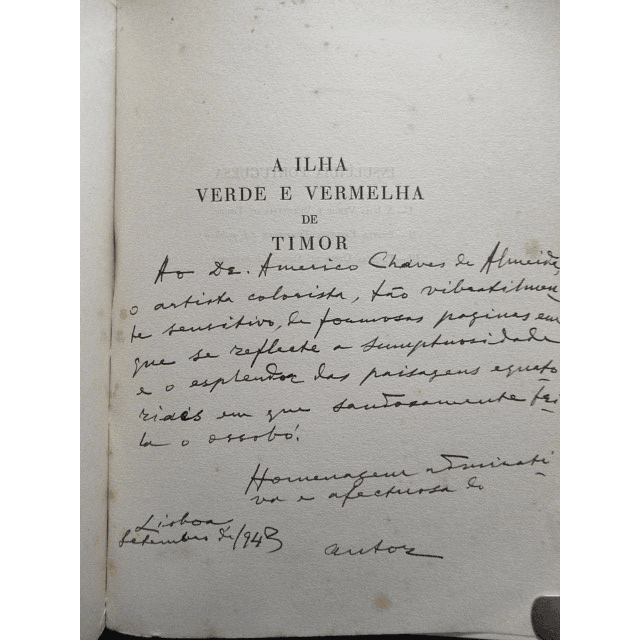 A ILHA
VERDE E VERMELHA
DE
TIMOR
Ao Dr. Americo Chaves de Almeida,
o artista colorista, tão vibratilmen
te sensitivo, de formosas paginas em
que se reflecte a sumptuosidade
e o esplendor das paisagens equato
riaes em que saudosamente tri
la o ossobó.
Homenagem admirati
va e afectuosa do
Lisboa
Setembro de 1943
autor